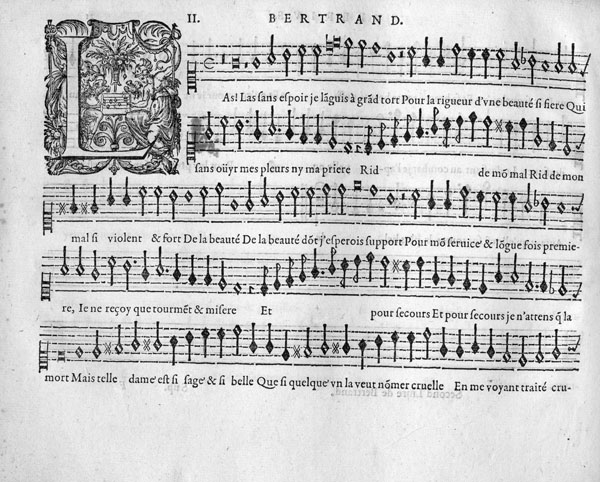 II. BERTRAND.
L
As! Las sans espoir je lãguis à grãd tort Pour la rigueur d'vne beauté si fiere Qui
sans oüyr mes pleurs ny ma priere Rid- de mõ mal Rid de mon
mal si violent & fort De la beauté De la beauté dõt j'esperois support Pour mõ seruice & lõgue fois premie-
re, Ie ne reçoy que tourmẽt & misere Et pour secours Et pour secours je n'attens q̃ la
mort Mais telle dame est si sage & si belle Que si quelque vn la veut nõmer cruelle En me voyant traité cru-